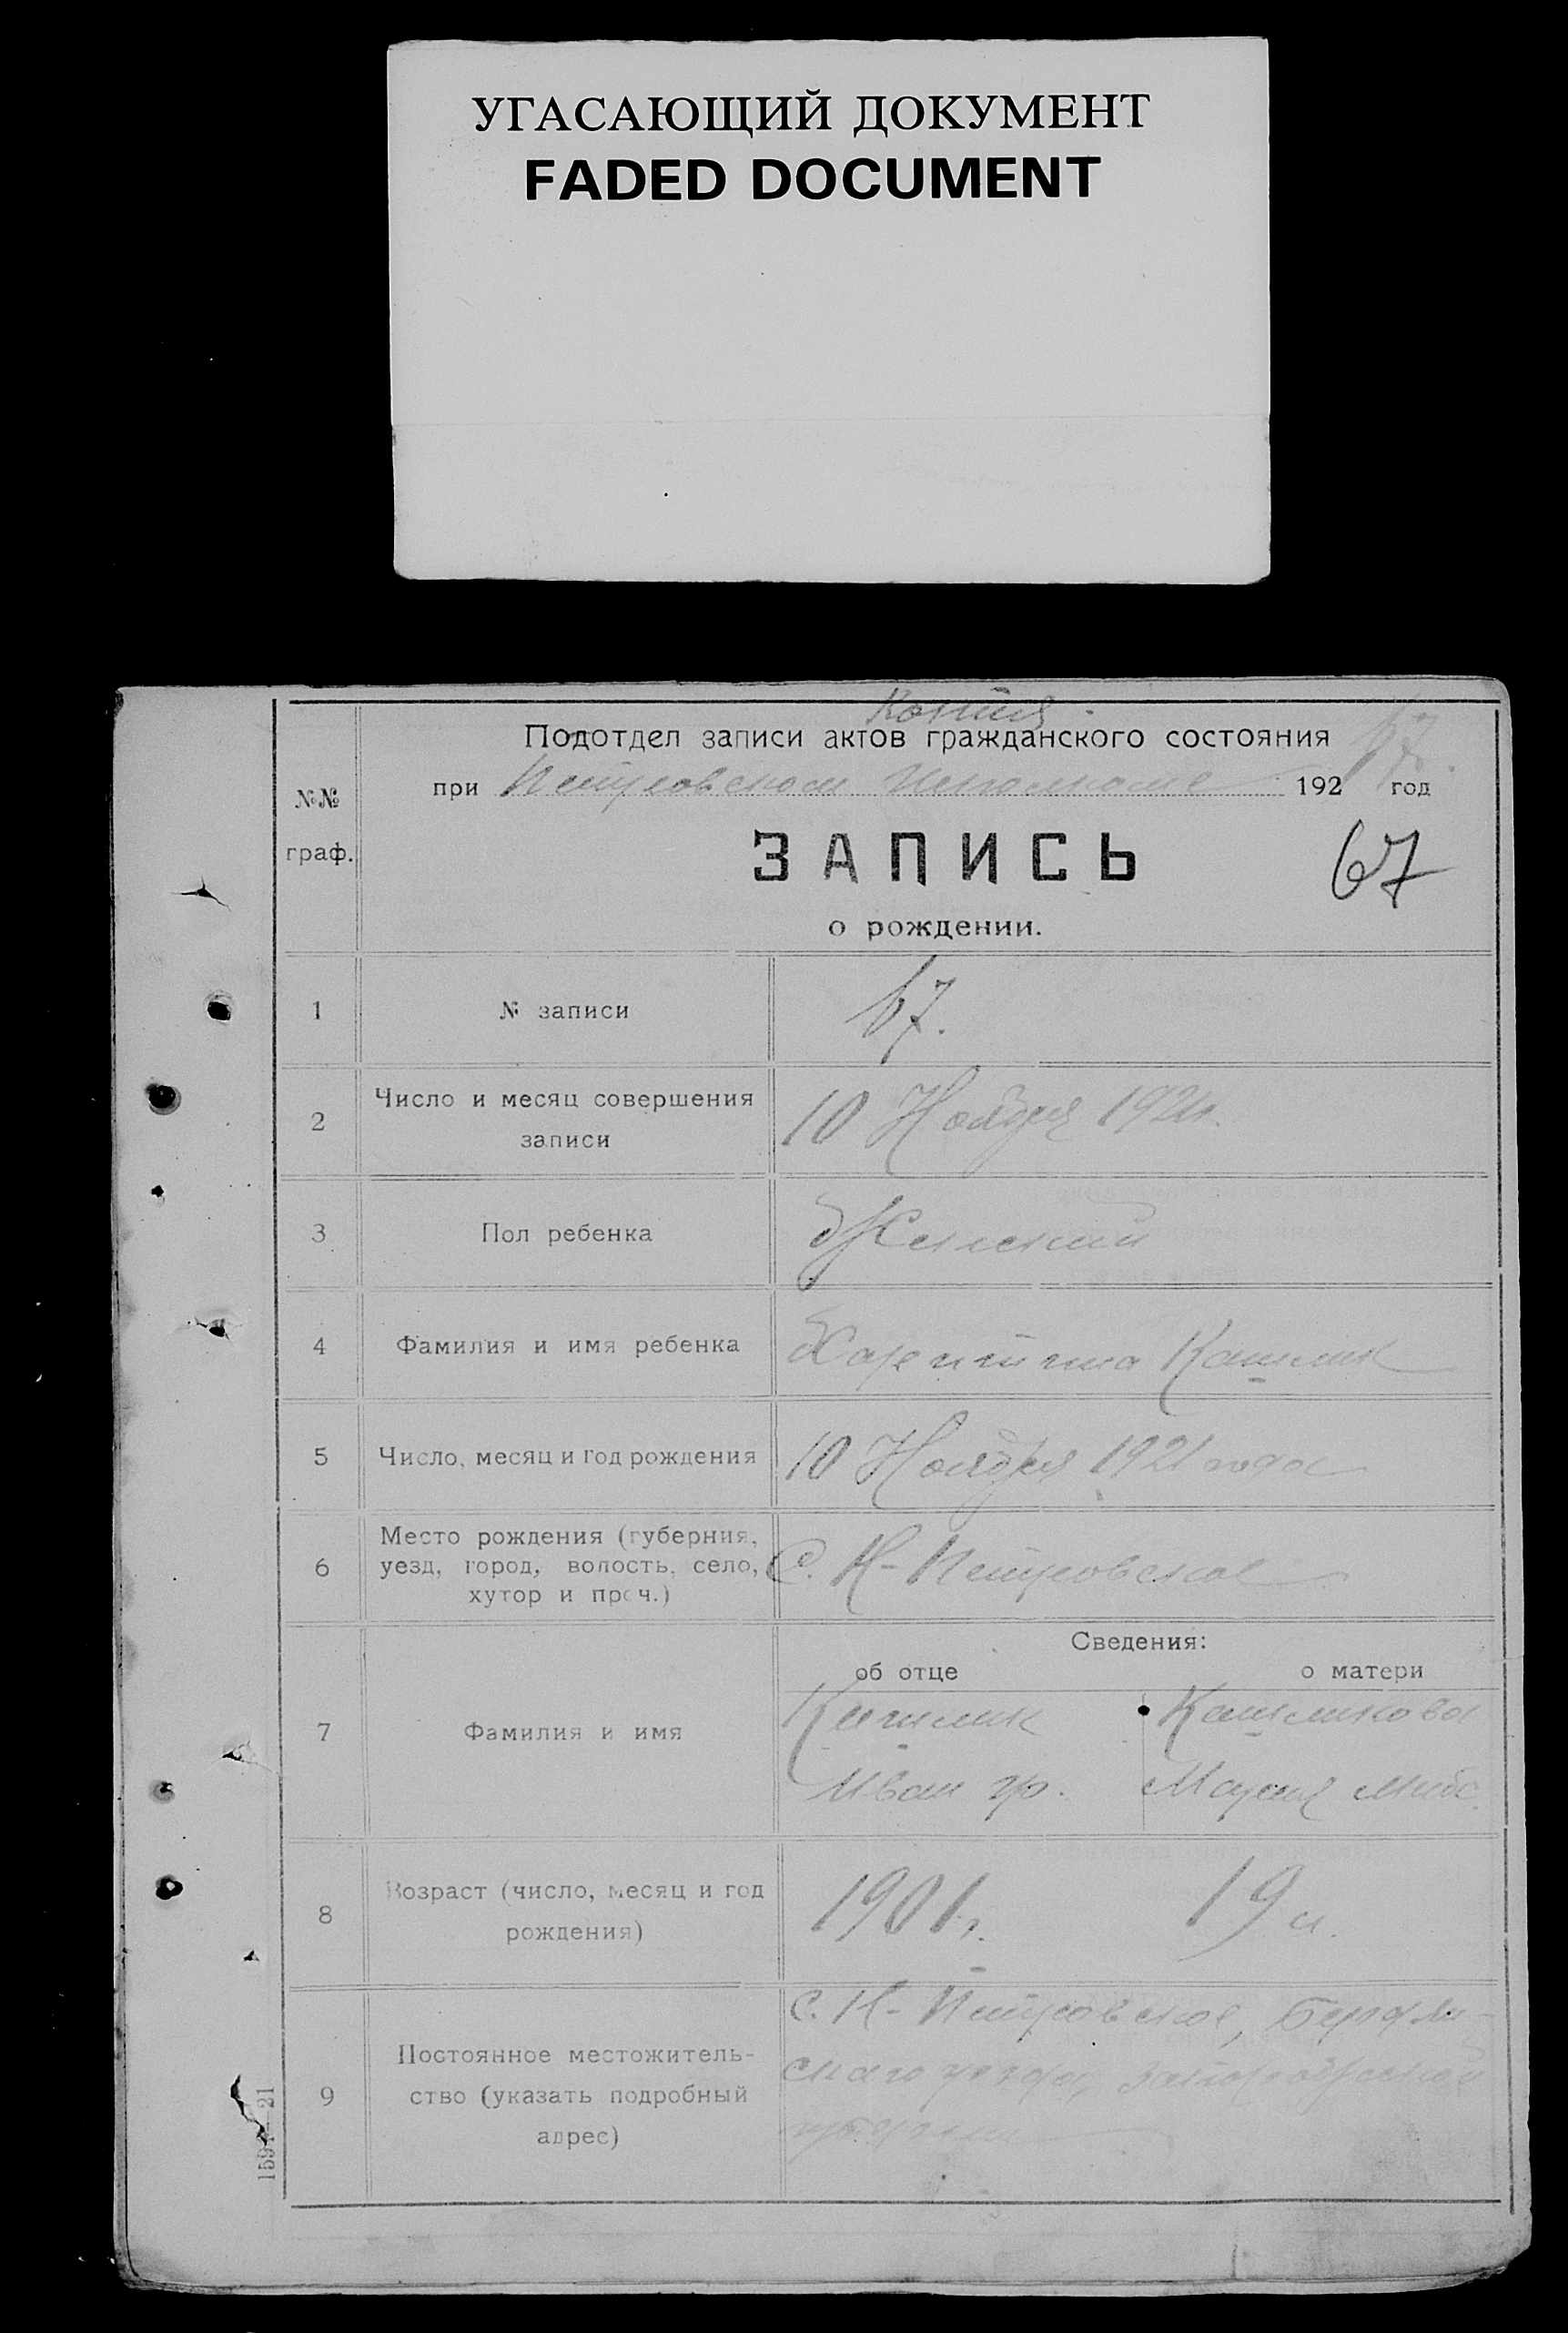 УГАСАЮЩИЙ ДОКУМЕНТ
FADED DOCUMENT
Копия.
Подотдел записи актов гражданского состояния
при Петровском Исполкоме 192 год
№№
граф.
ЗАПИСЬ
67
о рождении.
1 № записи 67.
2 Число и месяц совершения
записи
10 Ноября 1921г.
3 Пол ребенка Женский
4 Фамилия и имя ребенка Харитина
5 Число, месяц и год рождения 10 Ноября 1921 года
6 Место рождения (губерния,
уезд, город, волость, село,
хутор и проч.)
С. Н-Петровское
Сведения:
об отце о матери
7 Фамилия и имя
Иван гр. Мария
8 Возраст (число, месяц и год
рождения)
1901г. 19
9 Постоянное местожитель-
ство (указать подробный
адрес)
С. Н-Петровское, Бердян-
скаго уезда, Запорожской
губернии
21